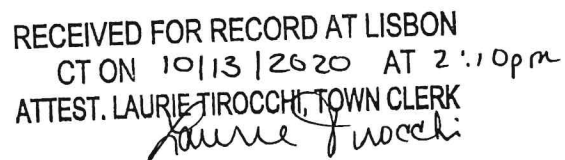 RECEIVED FOR RECORD AT LISBON
CT ON 10/13/2020 AT 2:10pm
ATTEST. LAURIE TIROCCHI, TOWN CLERK
Laurie Tirocchi